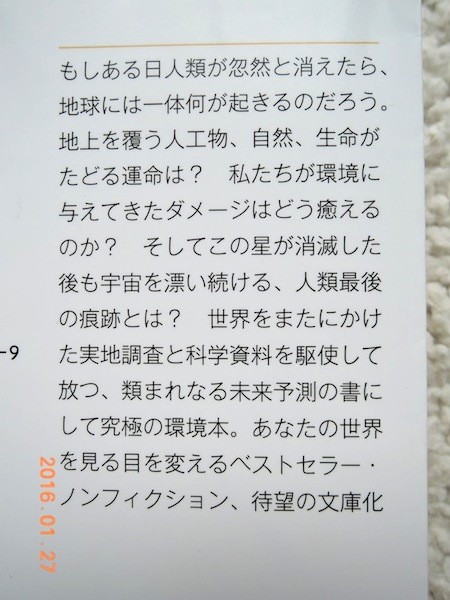 もしある日人類が忽然と消えたら、
地球には一体何が起きるのだろう。
地上を覆う人工物、自然、生命が
たどる運命は？　私たちが環境に
与えてきたダメージはどう癒える
のか？　そしてこの星が消滅した
後も宇宙を漂い続ける、人類最後
の痕跡とは？　世界をまたにかけ
た実地調査と科学資料を駆使して
放つ、類まれなる未来予測の書に
して究極の環境本。あなたの世界
を見る目を変えるベストセラー・
ノンフィクション、待望の文庫化
-9
2016.01.27